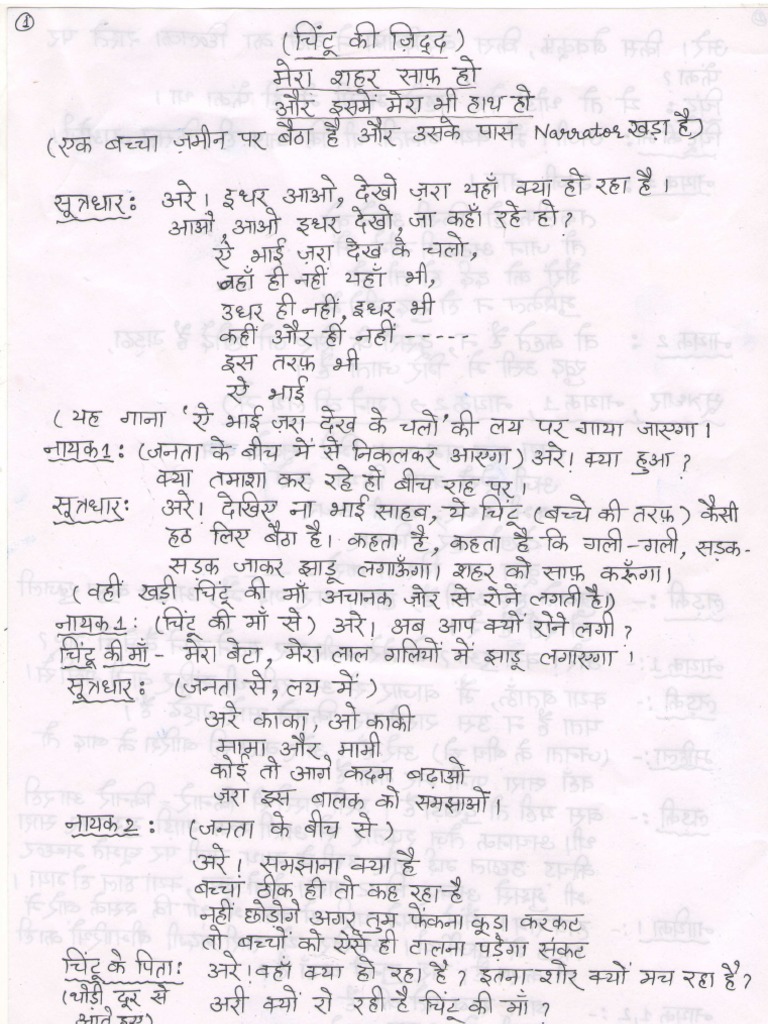 ①
(चिंटू की ज़िद्द)
मेरा शहर साफ़ हो
और इसमें मेरा भी हाथ हो
(एक बच्चा ज़मीन पर बैठा है और उसके पास Narrator खड़ा है)
सूत्रधार: अरे! इधर आओ, देखो ज़रा यहाँ क्या हो रहा है।
आओ, आओ इधर देखो, जा कहाँ रहे हो?
ऐ भाई ज़रा देख के चलो,
वहाँ ही नहीं यहाँ भी,
उधर ही नहीं, इधर भी
कहीं और ही नहीं -----
इस तरफ़ भी
ऐ भाई
(यह गाना 'ऐ भाई ज़रा देख के चलो' की लय पर गाया जाएगा।
नायक1: (जनता के बीच में से निकलकर आएगा) अरे! क्या हुआ?
क्या तमाशा कर रहे हो बीच राह पर।
सूत्रधार: अरे! देखिए ना भाई साहब, ये चिंटू (बच्चे की तरफ़) कैसी
हठ लिए बैठा है। कहता है, कहता है कि गली-गली, सड़क-
सड़क जाकर झाडू लगाऊँगा। शहर को साफ़ करूँगा।
(वहीं खड़ी चिंटू की माँ अचानक ज़ोर से रोने लगती है।)
नायक1: (चिंटू की माँ से) अरे! अब आप क्यों रोने लगी?
चिंटू की माँ - मेरा बेटा, मेरा लाल गलियों में झाडू लगाएगा।
सूत्रधार: (जनता से, लय में)
अरे काका, ओ काकी
मामा और मामी
कोई तो आगे कदम बढ़ाओ
ज़रा इस बालक को समझाओ।
नायक2: (जनता के बीच से)
अरे! समझाना क्या है
बच्चा ठीक ही तो कह रहा है
नहीं छोडोगे अगर तुम फेंकना कूड़ा करकट
तो बच्चों को ऐसे ही टालना पड़ेगा संकट
चिंटू के पिता: अरे! वहाँ क्या हो रहा है? इतना शोर क्यों मच रहा है?
(थोड़ी दूर से अरी क्यों रो रही है चिंटू की माँ?
आते हुए)